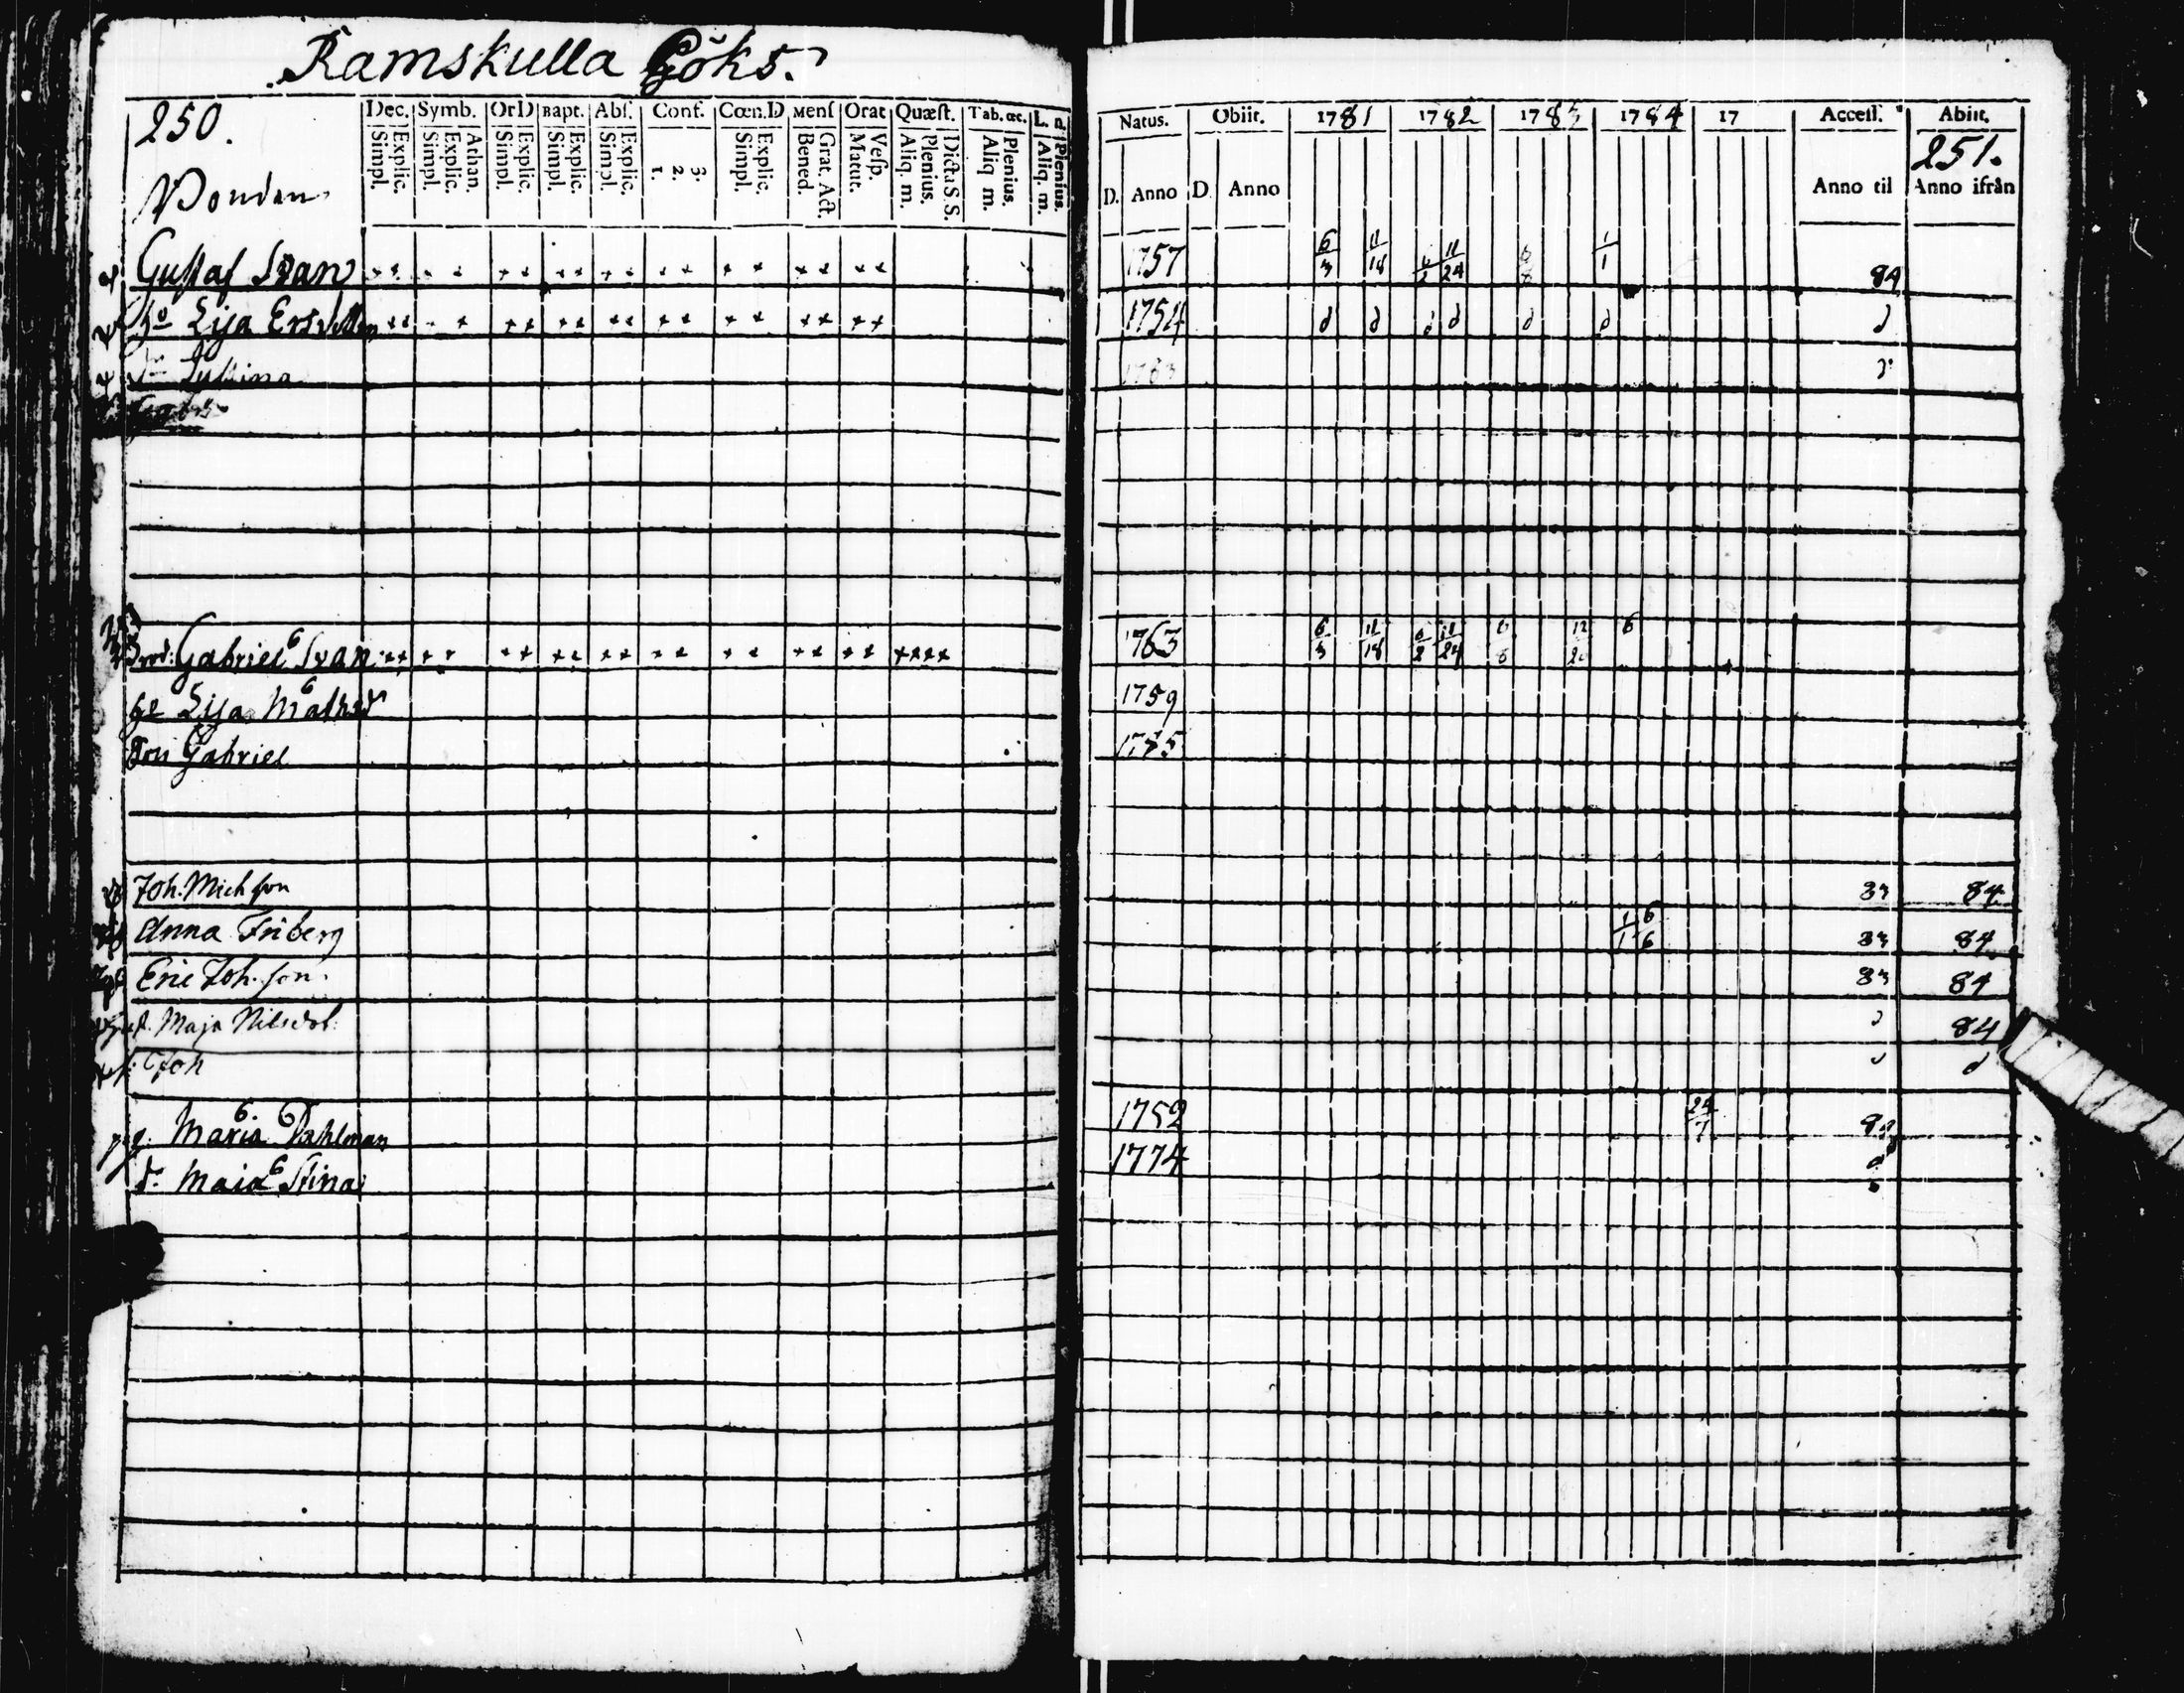 Ramskulla Göks.
250.
Dec. Symb. OrD Bapt. Abſ. Conf. Cœn.D Menſ Orat Quæſt. Tab. œc. L. n.
Explic. Simpl. Athan. Explic. Simpl. Explic. Simpl. Explic. Simpl. Explic. Simpl. 3. 2. 1. Explic. Simpl. Grat. Act. Bened. Veſp. Matut. Dicta S.S. Plenius. Aliq. m. Plenius. Aliq m. Plenius. Aliq. m.
Bonden
Gustaf Svan
h⁰ Lisa Ersd
Dr
Gabriel 6 Svan
Lisa 6 Matsd
Son Gabriel
Joh. Michson
Anna Friberg
Eric Joh. son.
Maja Nilsdot:
Joh
pig. Maria 6. Dahlman
dr. Maja 6 Stina
Natus. Obiit. 1781 1782 1783 1784 17 Acceſſ. Abiit.
251.
D. Anno D Anno Anno til Anno ifrån
1757 6/3 11/18 6/2 11/24 6/8 1/1 84
1754 d d d d d d d
1783 d
1763 6/3 11/18 6/2 11/24 6/8 12/20 6
1759
1785
83 84
1/1 6/6 83 84
83 84
d 84
d d
1752 24/7 84
1774 d